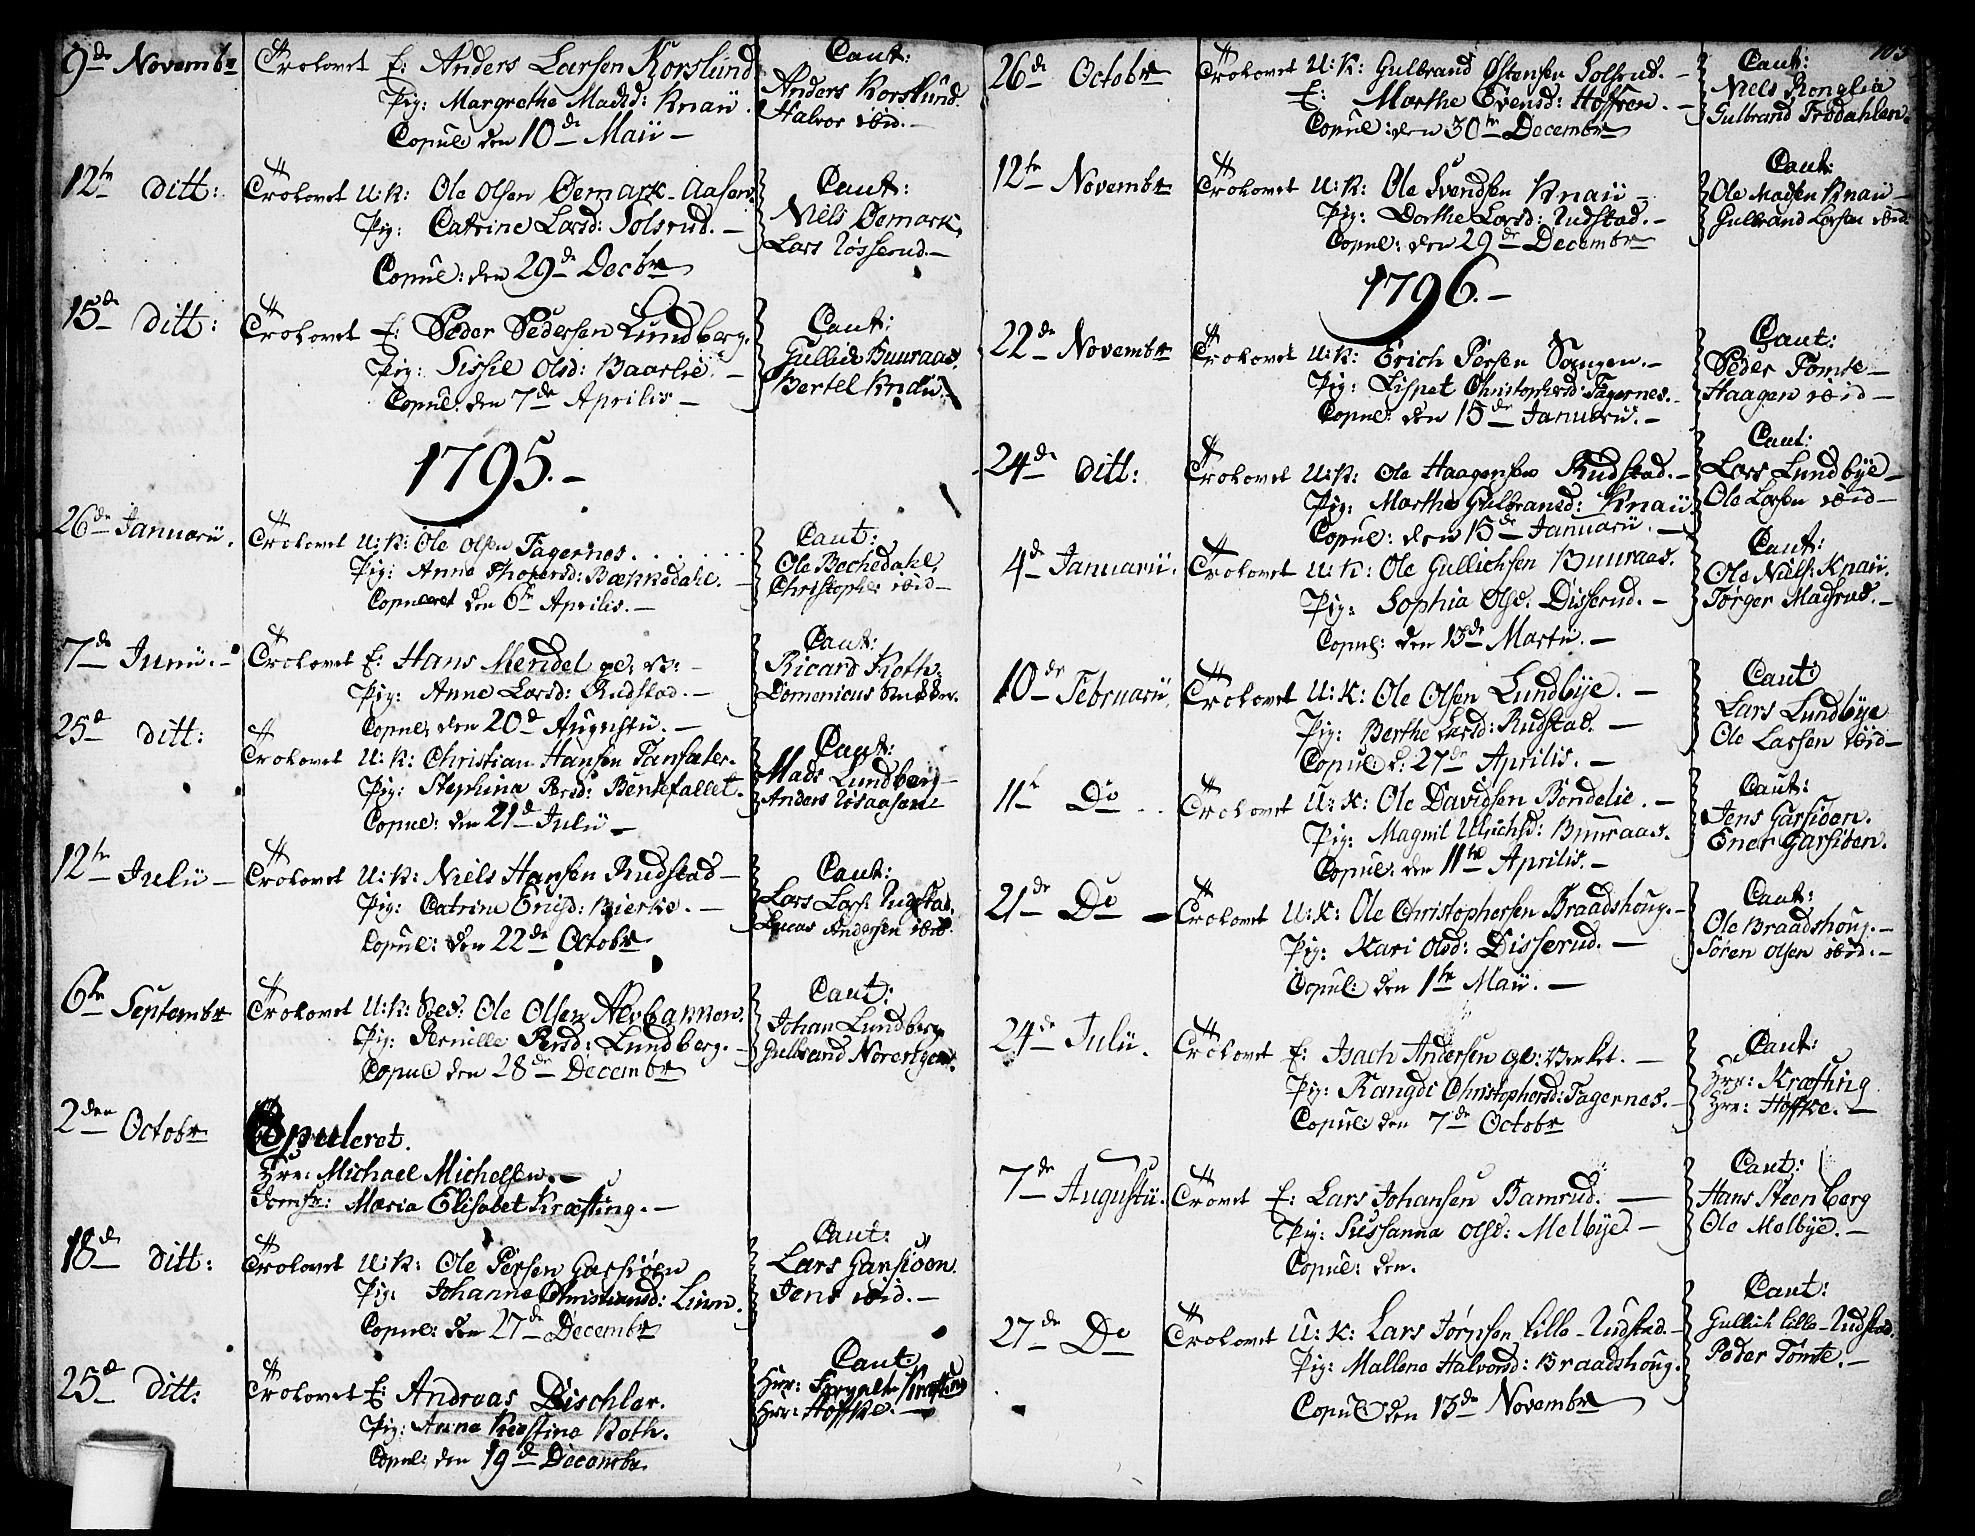 9de Novembr
Trolovet E: Anders Larsen Korslund
Pig: Margrethe Madsd: Knaü.
Copul den 10de Maii —
Caut:
Anders Korslund.
Halvor ibid. —
12te ditt:
Trolovet U:K: Ole Olsen Øemark-Aasen.
Pig: Catrine Larsd: Solsrud. —
Copul: den 29de Decbr
Caut:
Niels Øemark,
Lars Løsserud. —
15de ditt:
Trolovet E: Peder Pedersen Lundberg.
Pig: Sissie Olsd: Baarlie. —
Copul: den 7de Aprilis —
Caut:
Gullich Buuraas.
Bertel Knaü.
1795. —
26de Januarii.
Trolovet U:K: Ole Olsen Tagernes.
Pig: Anne Thoersd: Bækkedahl.
Copuleret den 6te Aprilis. —
Caut:
Ole Bechedahl,
Christopher ibid —
7de Junii. —
Trolovet E: Hans Mendel ge: V: —
Pig: Anne Larsd: Rudstad. —
Copul: den 20de Augustii. —
Caut:
Ricard Roth:
Domenicus Smedder.
25de ditt:
Trolovet U:K: Christian Hansen Tansæter.
Pig: Stephina Persd: Bentefallet.
Copul: den 21de Julii —
Caut:
Mads Lundberg —
Anders Løsaasen
12te Julii —
Trolovet U:K: Niels Hansen Rudstad —
Pig: Catrine Ericsd: Bierke. —
Copul: den 22de Octobr
Caut:
Lars Lars: Rudstad.
Lucas Andersen ibid.
6te Septembr
Trolovet U:K: Ole Olsen
Pig: Pernille Persd: Lundberg. —
Copul den 28de Decembr
Caut:
Johan Lundberg
Gulbrand Norengen.
2den Octobr
Copuleret.
Hrr: Michael Michelsen. —
Jomfr: Maria Elisabet Kræfting. —
18de ditt:
Trolovet U:K: Ole Persen Garsiøen
Pig: Johanne Christiansd: Liun.
Copul: den 27de Decembr
Caut:
Lars Garsiøen.
Jens ibid. —
25de ditt:
Trolovet E: Andreas Dischler.
Pig: Anne Kirstine Roth.
Copul: den 19de Decembr.
Caut
Hrr: Kræfting
Hrr: Høffke. —
103
26de Octobr
Trolovet U:K: Gulbrand Østensen Solsrud. —
E: Marthe Evensd: Hoffven. —
Copul: den 30te Decembr
Caut:
Niels Ronglia
Gulbrand Trødahlen.
12te Novembr
Trolovet U:K: Ole Svendsen Knaü —
Pig: Dorthe Larsd: Rudstad. —
Copul: den 29de Decembr
Caut:
Ole Madsen Knaü —
Gulbrand Larsen ibid
1796. —
22de Novembr
Trolovet U:K: Erich Persen Sangen. —
Pig: Lispet Christophersd: Tagernes. —
Copul: den 15de Januarii. —
Caut:
Peder Tomte —
Haagen ibid —
24de ditt:
Trolovet U:K: Ole Haagensen Rudstad. —
Pig: Marthe Gulbransd: Knaü
Copul: den 15de Januarii. —
Caut:
Lars Lundbÿe —
Ole Larsen ibid —
4de Januarii.
Trolovet U:K: Ole Gullichsen Buuraas.
Pig: Sophia Olsd: Disserud. —
Copul: den 13de Martii. —
Caut:
Ole Niels: Knaü.
Torger Madsrud. —
10de Februarii.
Trolovet U:K: Ole Olsen Lundbÿe. —
Pig: Berthe Larsd: Rudstad. —
Copul: d: 27de Aprilis. —
Caut
Lars Lundbÿe
Ole Lassen ibid —
11te Do
Trolovet U:K: Ole Davidsen Bondelie. —
Pig: Magnil Ulrichsd: Buuraas.
Copul: den 11te Aprilis. —
Caut:
Jens Garsiöen.
Ener Garsiöen.
21de Do —
Trolovet U:K: Ole Christophersen Braadshoug. —
Pig: Kari Olsd: Disserud. —
Copul: den 1te Maii. —
Caut:
Ole Braadshoug. —
Søren Olsen ibid. —
24de Julii.
Trolovet E: Isach Andersen ge: Verket. —
Pig: Rangdi Christophersd: Tagernes. —
Copul: den 7de Octobr
Caut:
Hrr: Kræfting
Hrr: Høffke. —
7de Augustii.
Trolovet E: Lars Johansen Bamrud. —
Pig: Sussanna Olsd: Melbÿe —
Copul: den.
Caut:
Hans Steenberg
Ole Melbÿe. —
27de Do
Trolovet U:K: Lars Jørgsen Lille-Rudstad. —
Pig: Mallene Halvorsd: Braadshoug.
Copul den 13de Novembr
Caut:
Gullich Lille-Rudstad.
Peder Tomte. —